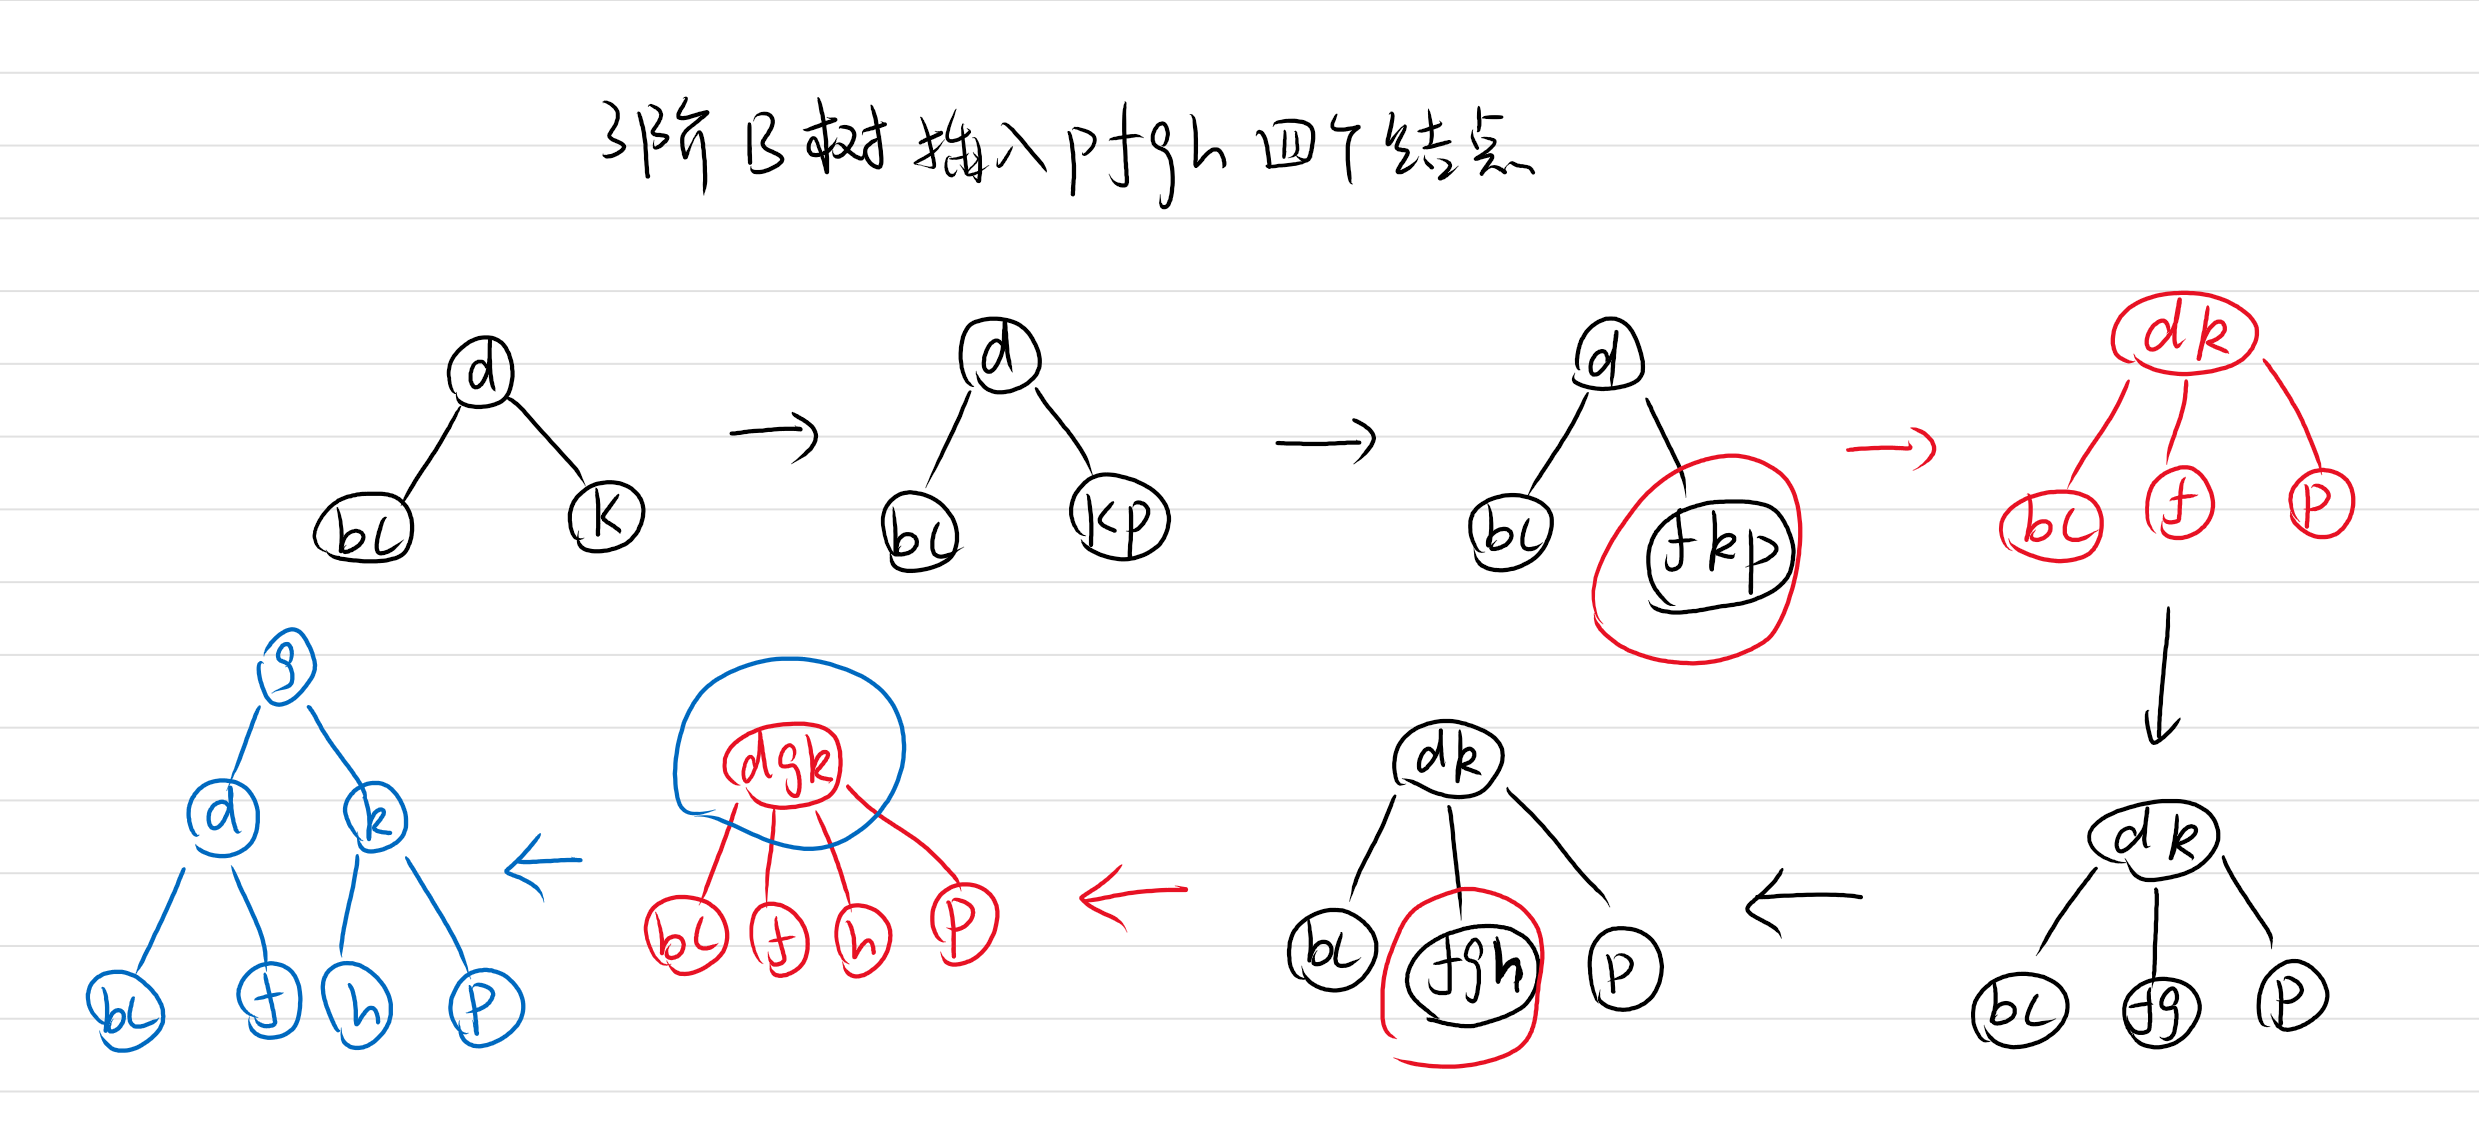 3阶B树插入pfgh四个结点
d
bc K
d
bc kp
d
bc fkp
dk
bc f p
dk
bc fg p
dk
bc fgh p
dgk
bc f h p
g
d k
bc f h p